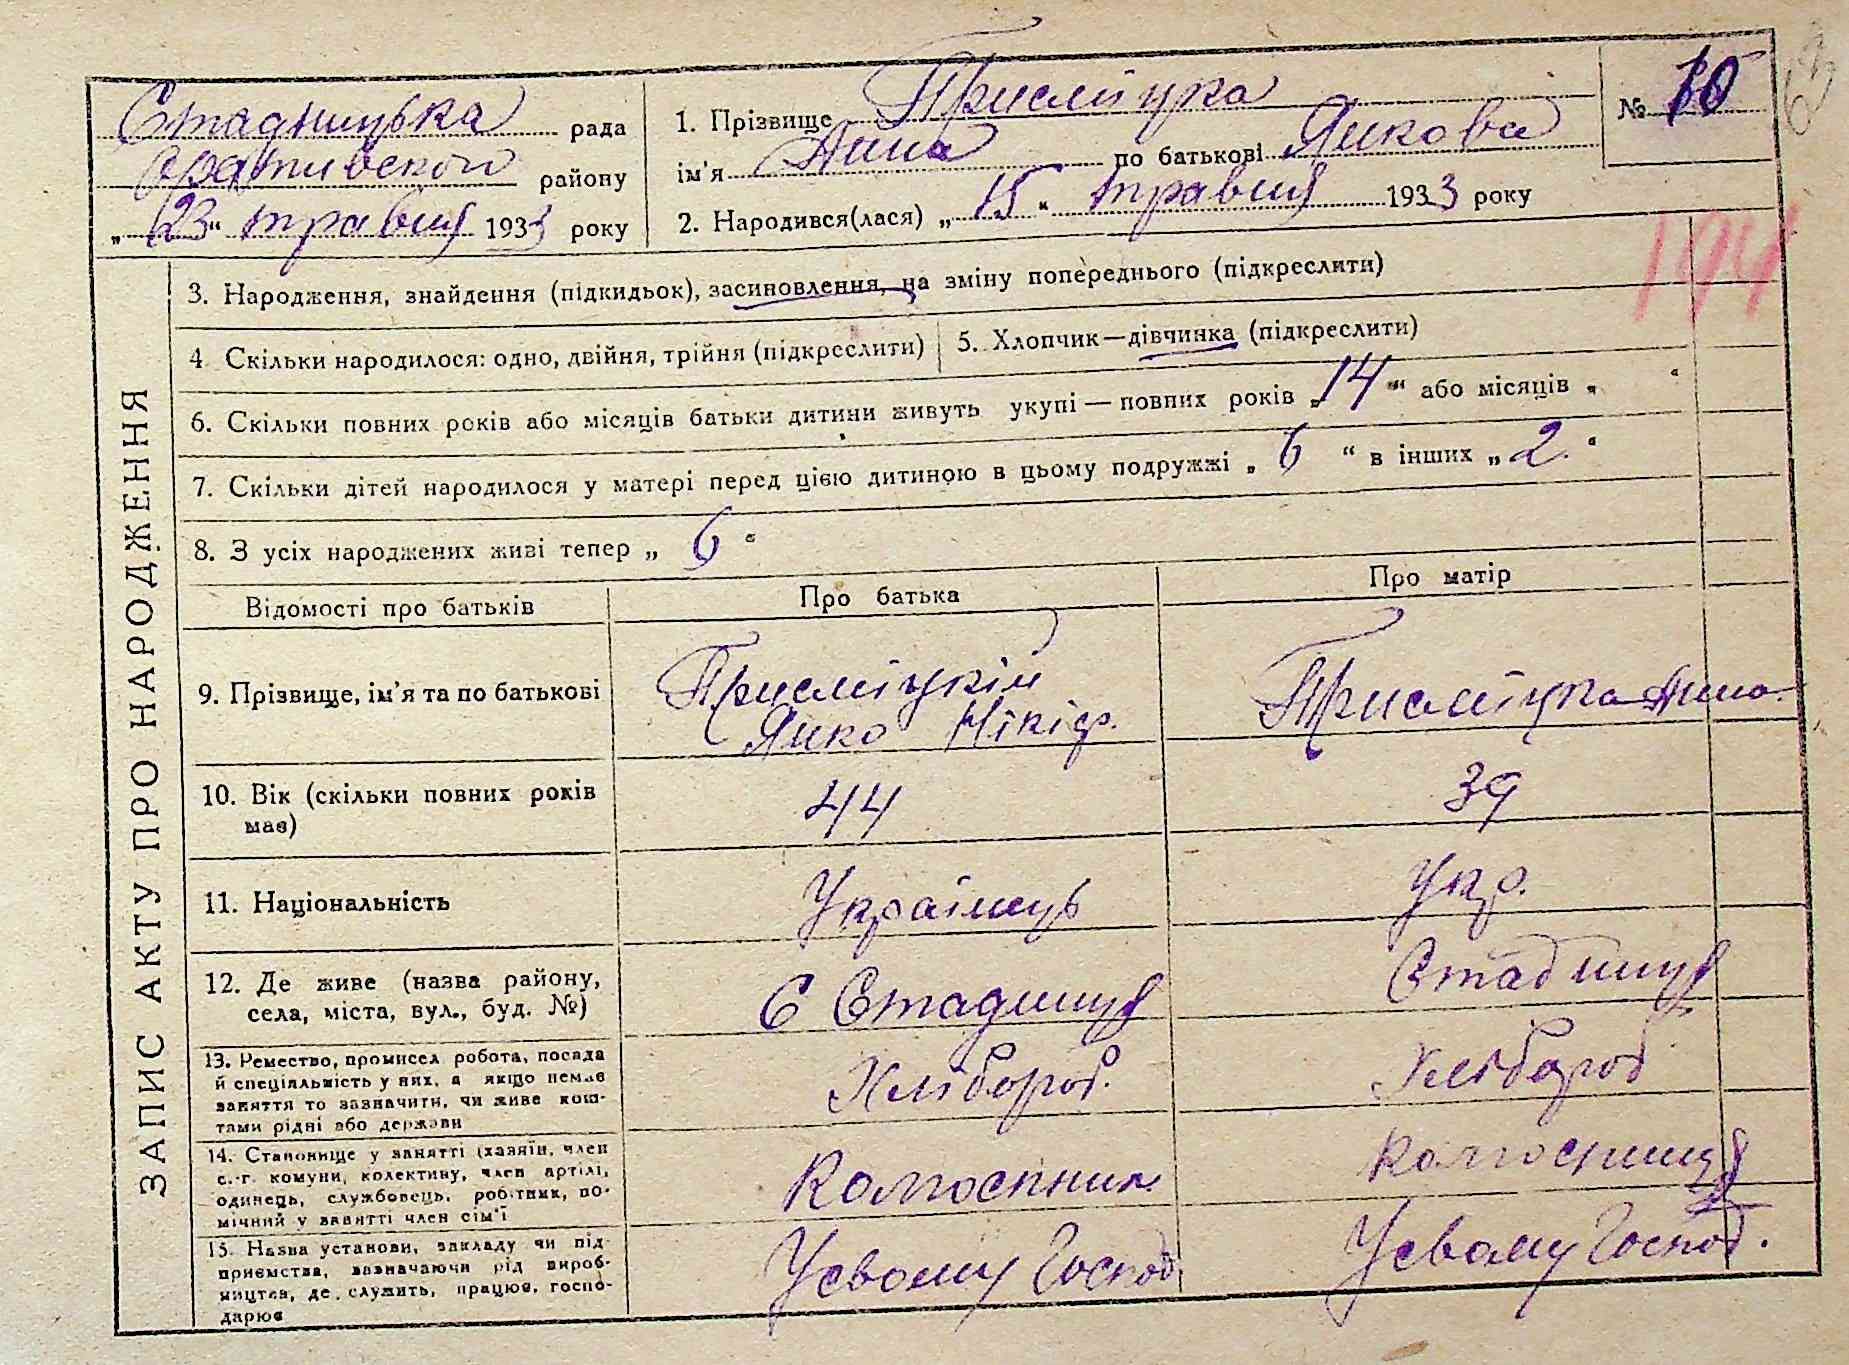 Стадницька рада
Оратівского району
„23“ травня 1933 року
1. Прізвище Присліцка
ім'я Анна по батькові Янкова
№ 10
2. Народився(лася) „15“ травня 1933 року
194
ЗАПИС АКТУ ПРО НАРОДЖЕННЯ
3. Народження, знайдення (підкидьок), засиновлення, на зміну попереднього (підкреслити)
4 Скільки народилося: одно, двійня, трійня (підкреслити)
5. Хлопчик—дівчинка (підкреслити)
6. Скільки повних років або місяців батьки дитини живуть укупі — повних років „14“ або місяців „ “
7. Скільки дітей народилося у матері перед цією дитиною в цьому подружжі „ 6 “ в інших „ 2. “
8. З усіх народжених живі тепер „ 6 “
Відомості про батьків
Про батька
Про матір
9. Прізвище, ім'я та по батькові
Присліцкій
Янко Нікіф.
Присліцка Анна
10. Вік (скільки повних років
має)
44
39
11. Національність
Українець
Укр.
12. Де живе (назва району,
села, міста, вул., буд. №)
С Стадниця
Стадниця
13. Ремество, промисел робота, посада
й спеціяльність у них, а якщо немає
заняття то зазначити, чи живе кош-
тами рідні або держави
Хлібороб.
Хлібороб
14. Становище у занятті (хазяїн, член
с.-г. комуни, колективу, член артілі,
одинець, службовець, робітник, по-
мічний у занятті член сім'ї
Колгоспник
Колгоспниця
15. Назва установи, закладу чи під-
приємства, зазначаючи рід вироб-
ництва, де служить, працює, госпо-
дарює
Усвому Господ.
Усвому Господ.